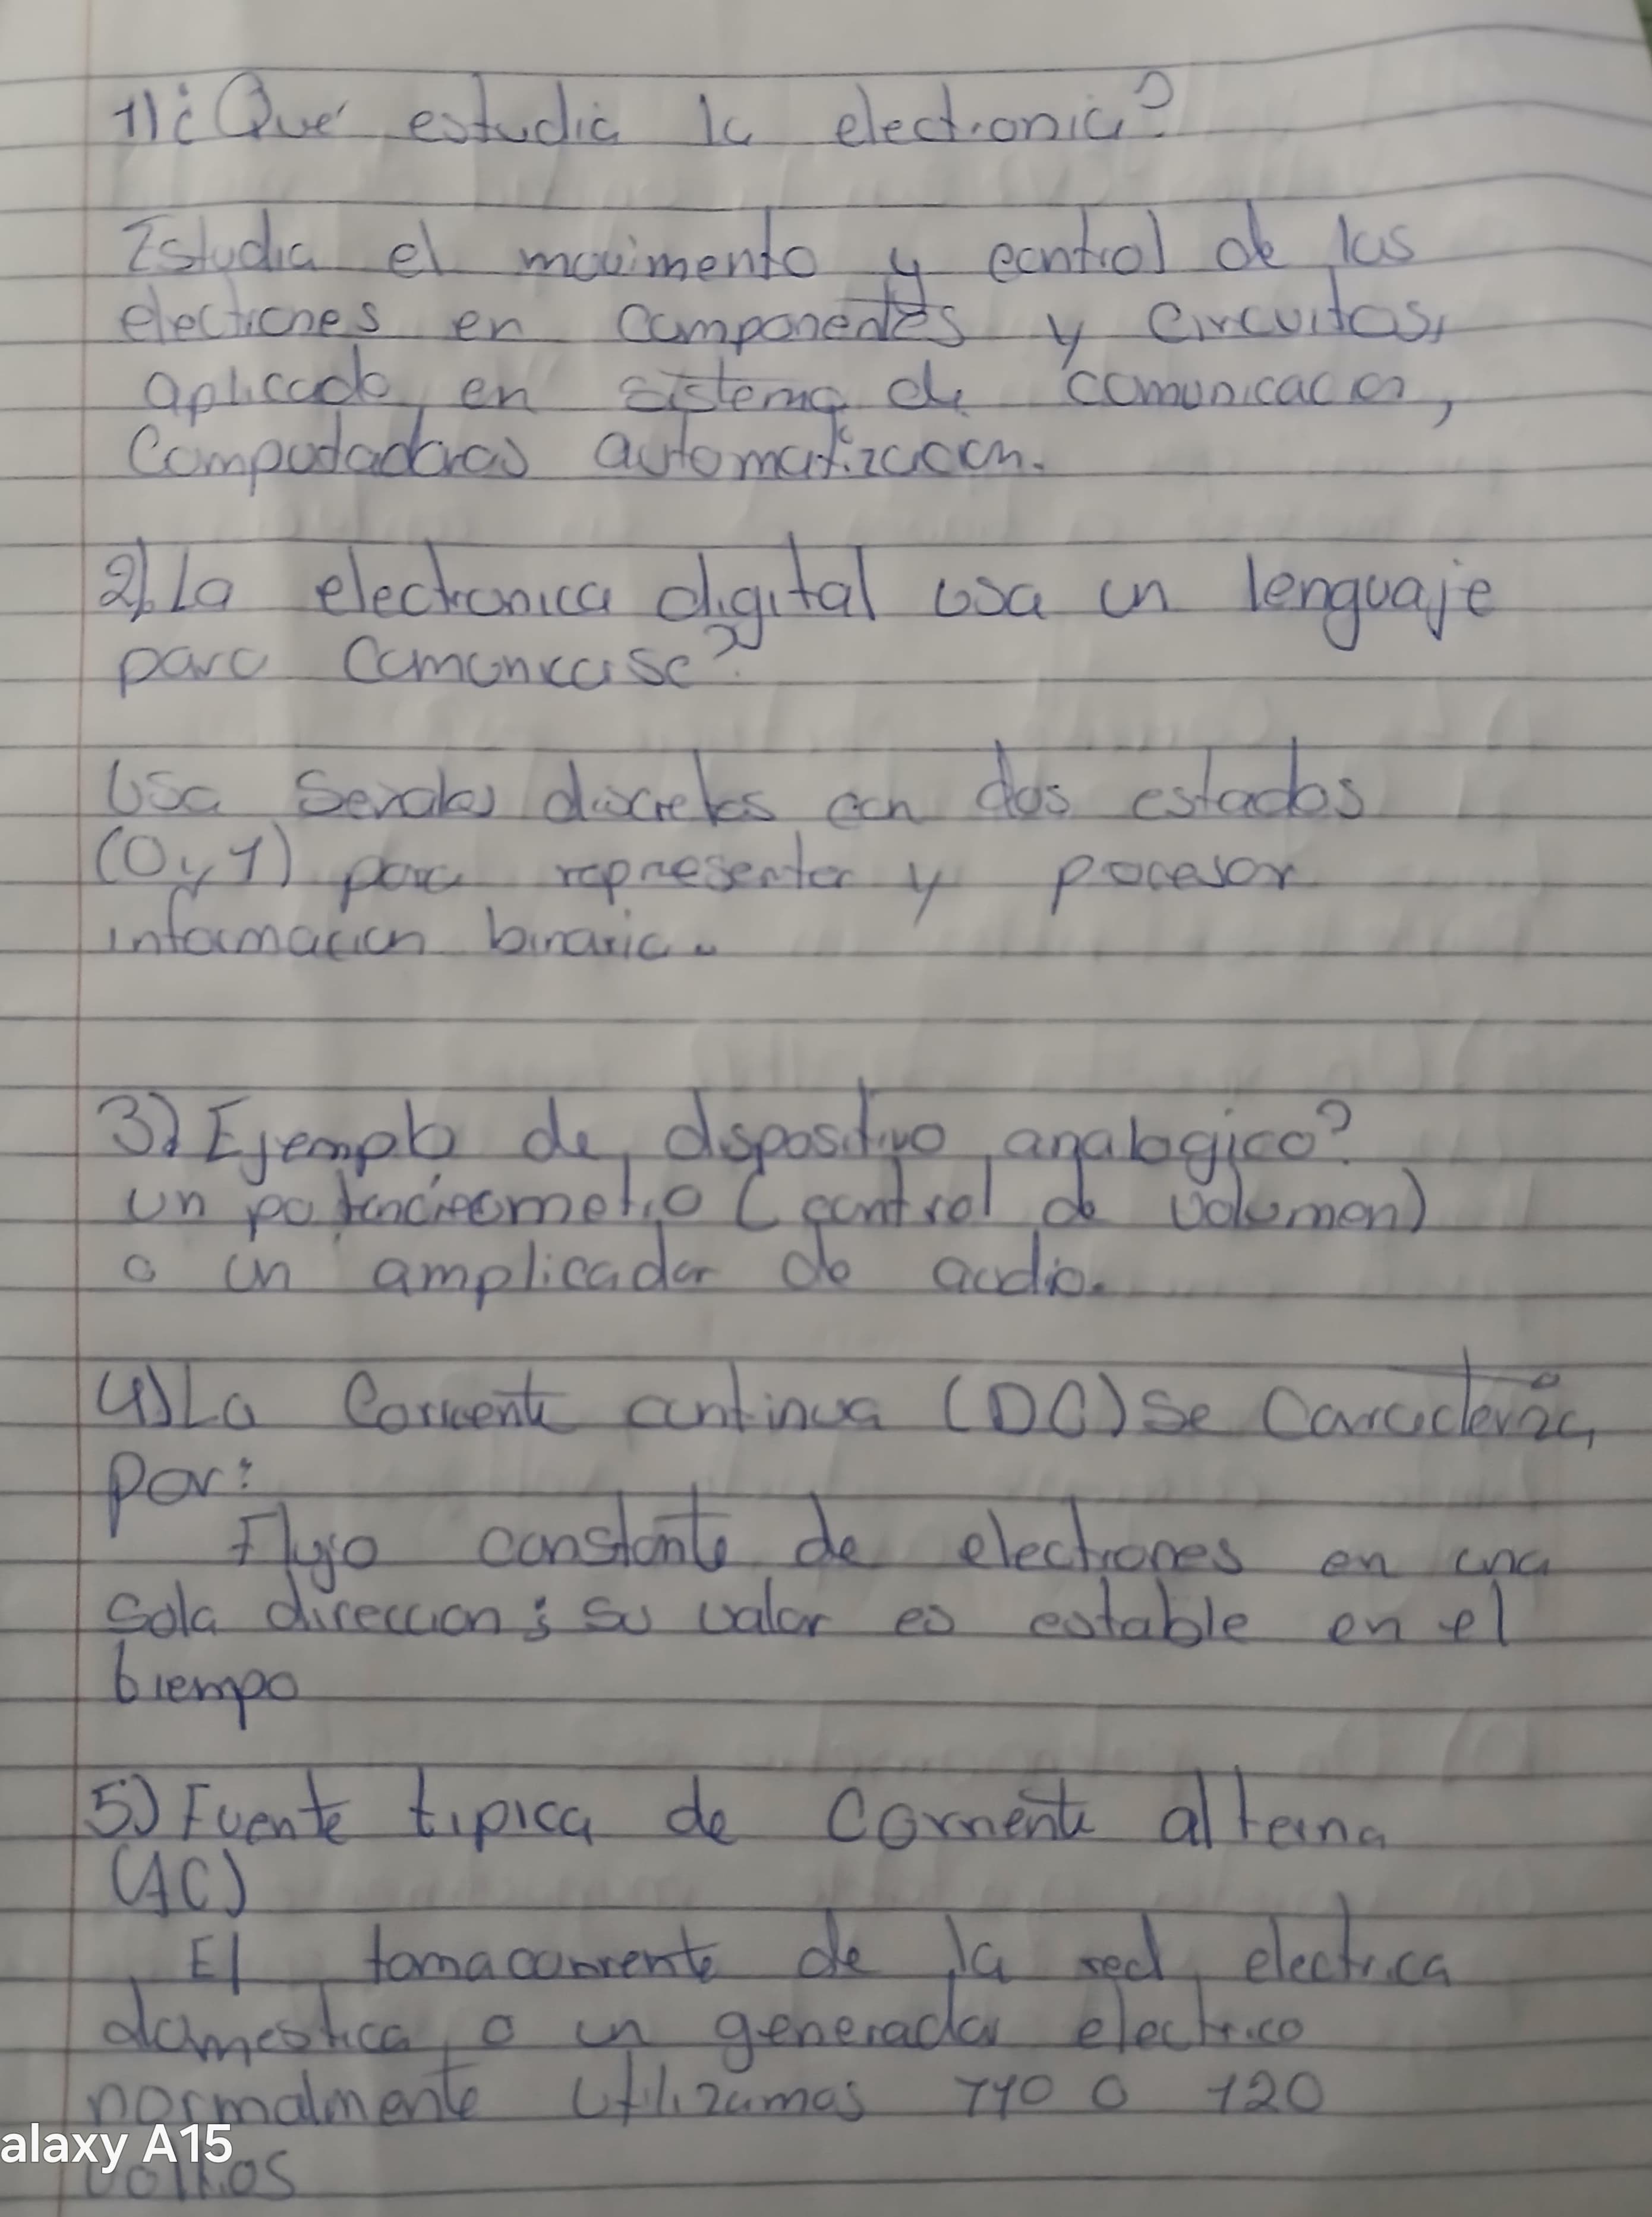 1) ¿Que estudia la electronica?
Estudia el movimento y control de los
electrones en componentes y circuitos,
aplicado en sistema de comunicacion,
Computadoras automatizacion.
2). La electronica digital usa un lenguaje
para Comunicarse?
Usa Senales discretas con dos estados
(0 y 1) para representar y procesar
informacion binaria.
3) Ejemplo de dispositivo analogico?
un potencieometro (control de volumen)
o un amplicador de audio.
4) La Corriente continua (DC) Se Caracteriza
por:
Flujo constante de electrones en una
sola direccion; su valor es estable en el
tiempo
5) Fuente tipica de Corriente alterna
(AC)
El tomacorriente de la red electrica
domestica o un generador electrico
normalmente Utilizamos 110 o 120
voltios
alaxy A15